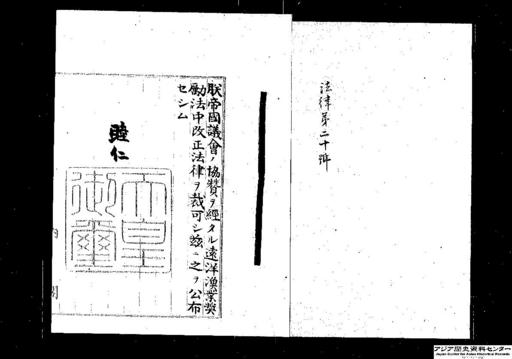 法律第二十號
朕帝國議會ノ協贊ヲ經タル遠洋漁業奬
勵法中改正法律ヲ裁可シ玆ニ之ヲ公布
セシム
睦仁
天皇
御璽
内閣
アジア歴史資料センター
Japan Center for Asian Historical Records